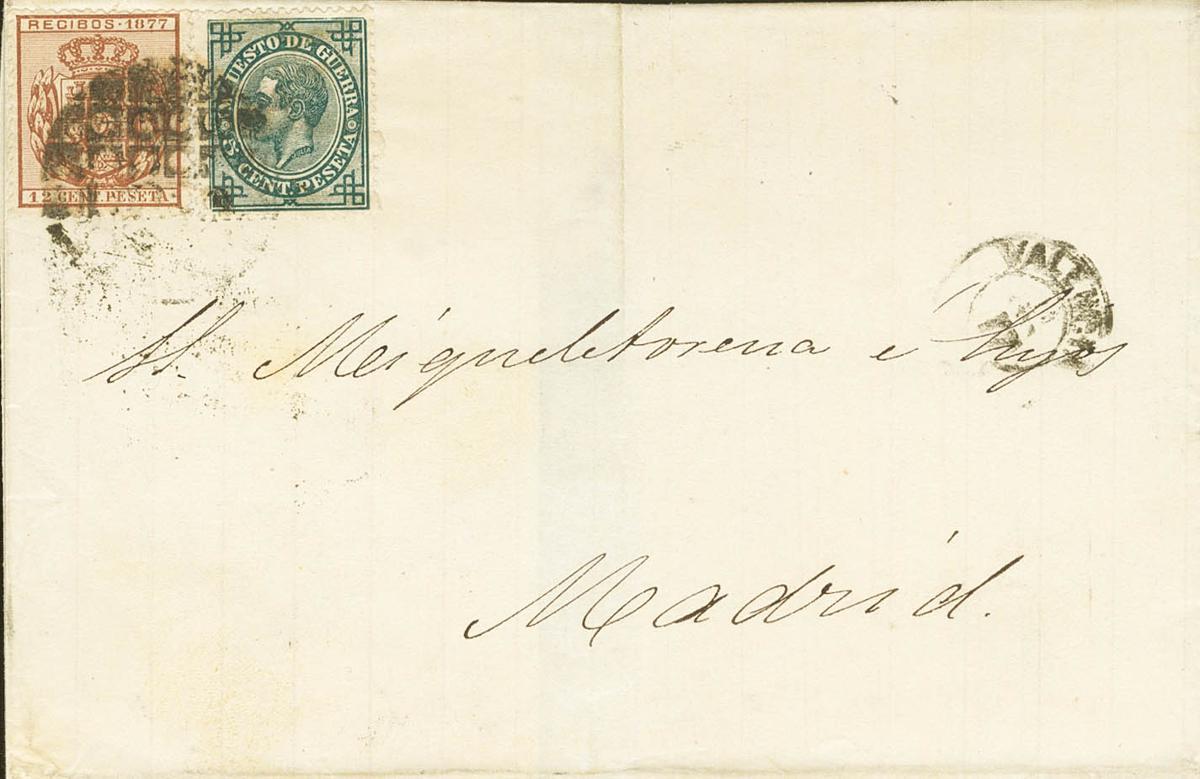 RECIBOS·1877
12 CENT. PESETA
IMPUESTO DE GUERRA
5 CENT. PESETA
Migueletorena e hijos
Madrid.